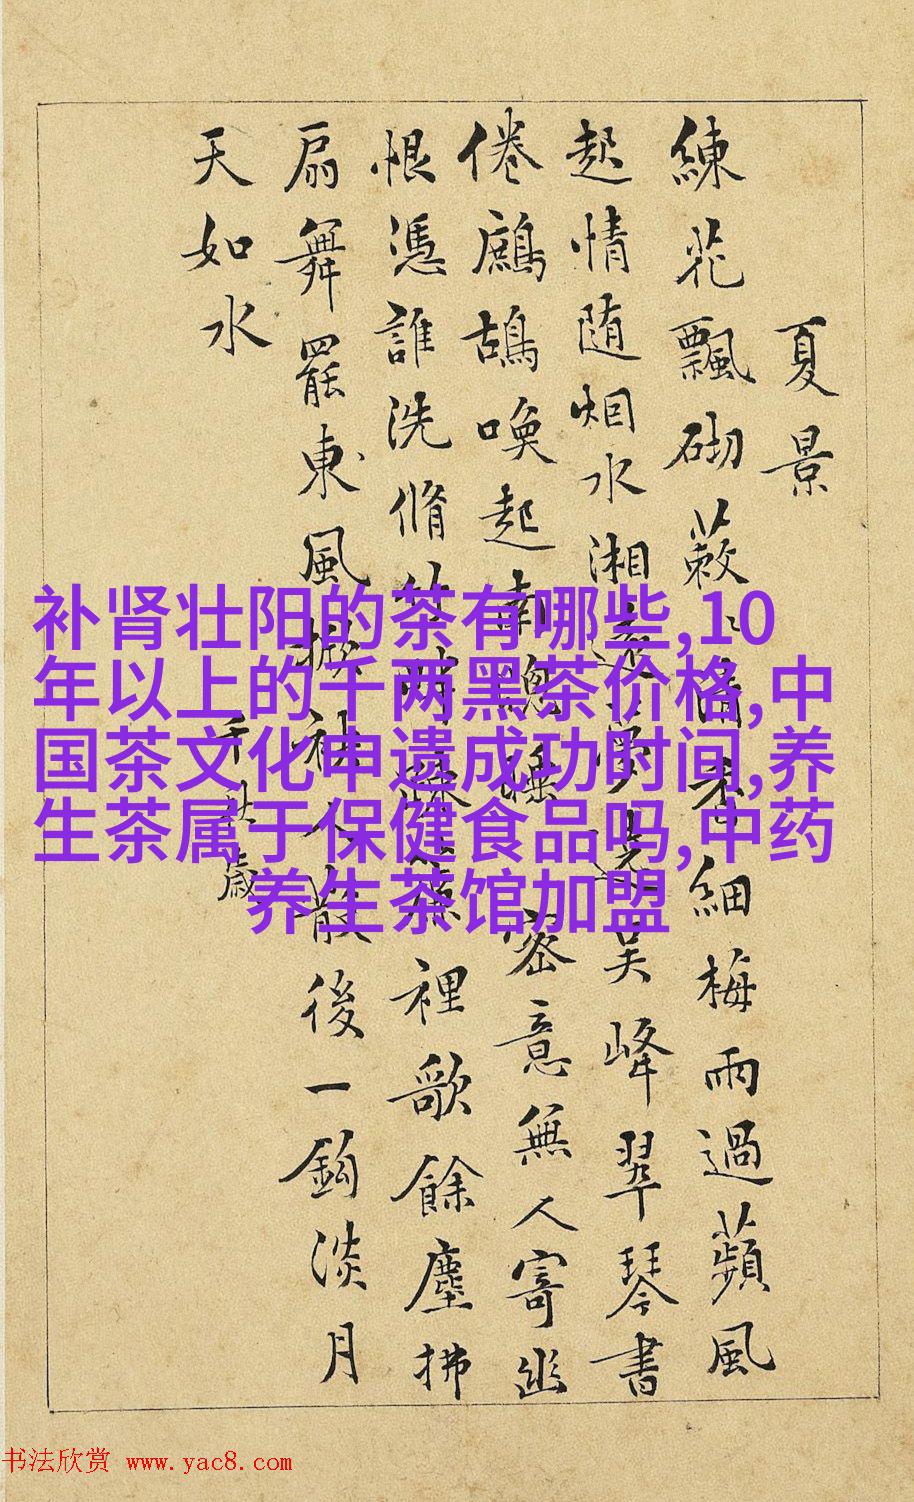 夏景
練花飄砌蔌〻清香細梅雨過蘋風
起情随烟水湘遠夢遶吳峰翠琴書
倦鷓鴣喚起南窻睡密意無人寄幽
恨憑誰洗脩竹畔疎簾裡歌餘塵拂
扇舞罷東風掀袂人散後一鈎淡月
天如水
千秋歲
补肾壮阳的茶有哪些,10
年以上的千两黑茶价格,中
国茶文化申遗成功时间,养
生茶属于保健食品吗,中药
养生茶馆加盟
书法欣赏 www.yac8.com